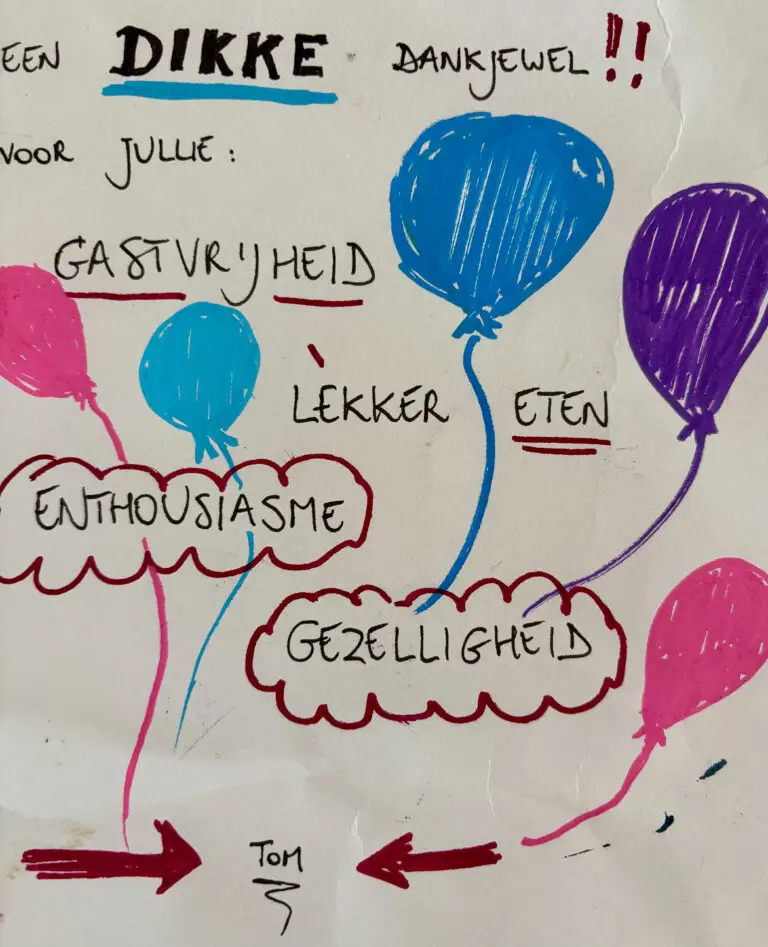 EEN DIKKE DANKJEWEL !!
VOOR JULLIE :
GASTVRIJHEID
LEKKER ETEN
ENTHOUSIASME
GEZELLIGHEID
TOM